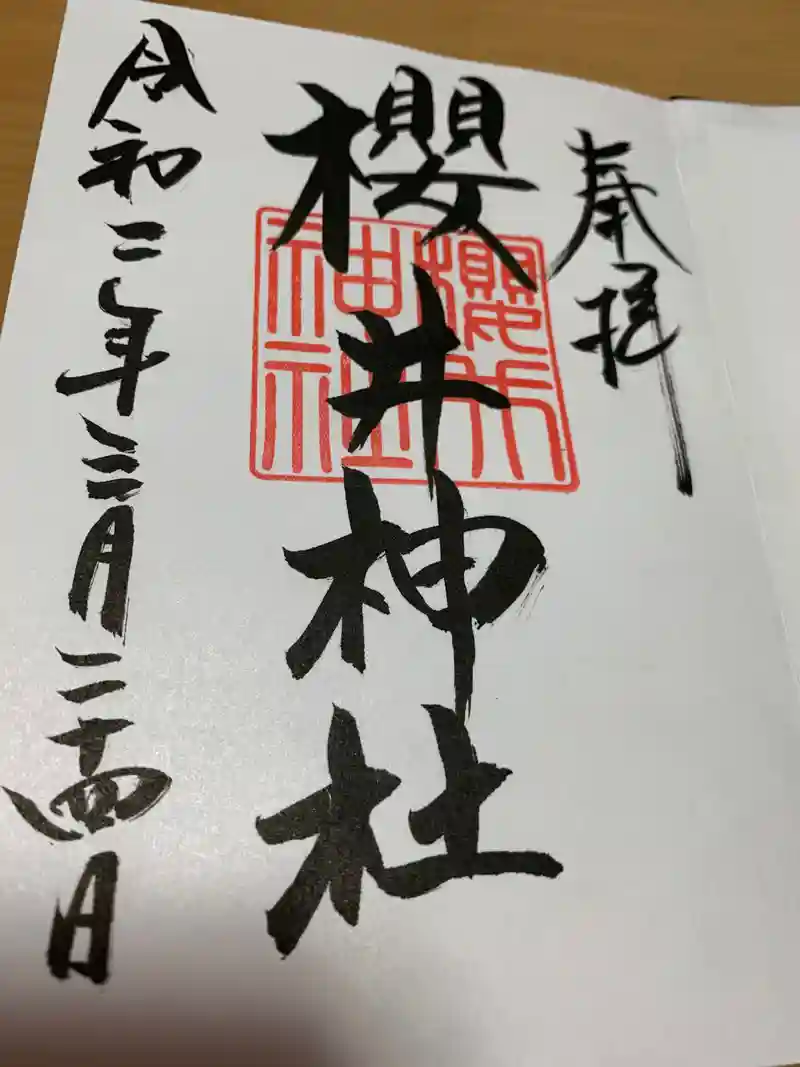 奉拝
櫻井神社
櫻井
神社
令和二年三月二十四日